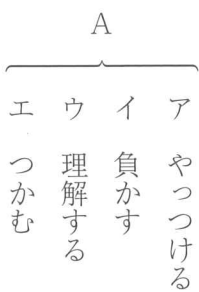 A
ア やっつける
イ 負かす
ウ 理解する
エ つかむ